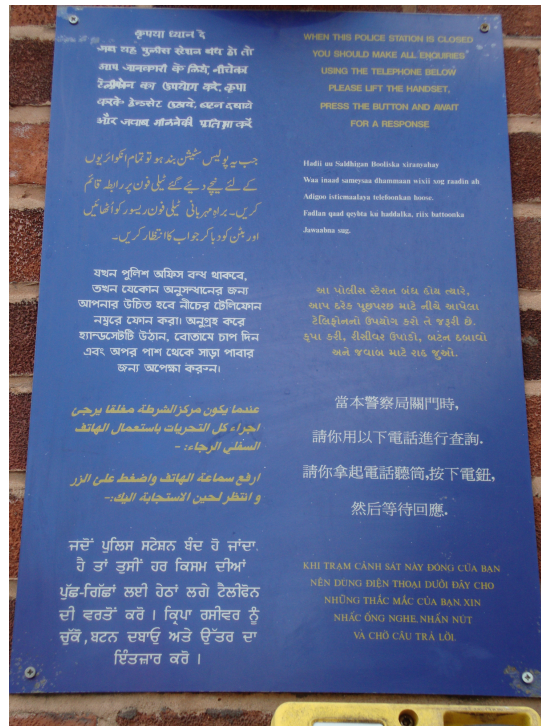 कृपया ध्यान दे
जब यह पुलीस स्टेशन बंध हो तो
आप जानकारी के लिये नीचेका
टेलीफोन का उपयोग करे, कृपा
करके हेन्डसेट उठाये, बटन दबाये
और जवाब मीलनेकी प्रतिक्षा करें
جب یہ پولیس سٹیشن بند ہو تو تمام انکوائریوں
کے لئے نیچے دیئے گئے ٹیلی فون پر رابطہ قائم
کریں۔ براہ مہربانی ٹیلی فون ریسور کو اُٹھائیں
اور بٹن کو دبا کر جواب کا انتظار کریں۔
যখন পুলিশ অফিস বন্ধ থাকবে,
তখন যেকোন অনুসন্ধানের জন্য
আপনার উচিত হবে নীচের টেলিফোন
নম্বরে ফোন করা। অনুগ্রহ করে
হ্যান্ডসেটটি উঠান, বোতামে চাপ দিন
এবং অপর পাশ থেকে সাড়া পাবার
জন্য অপেক্ষা করুন।
عندما يكون مركز الشرطة مغلقا يرجى
اجراء كل التحريات باستعمال الهاتف
السفلي الرجاء: -
ارفع سماعة الهاتف واضغط على الزر
و انتظر لحين الاستجابة اليك:-
ਜਦੋਂ ਪੁਲਿਸ ਸਟੇਸ਼ਨ ਬੰਦ ਹੋ ਜਾਂਦਾ
ਹੈ ਤਾਂ ਤੁਸੀਂ ਹਰ ਕਿਸਮ ਦੀਆਂ
ਪੁੱਛ-ਗਿੱਛਾਂ ਲਈ ਹੇਠਾਂ ਲਗੇ ਟੈਲੀਫੋਨ
ਦੀ ਵਰਤੋਂ ਕਰੋ । ਕ੍ਰਿਪਾ ਰਸੀਵਰ ਨੂੰ
ਚੁੱਕੋ, ਬਟਨ ਦਬਾਓ ਅਤੇ ਉੱਤਰ ਦਾ
ਇੰਤਜ਼ਾਰ ਕਰੋ ।
WHEN THIS POLICE STATION IS CLOSED
YOU SHOULD MAKE ALL ENQUIRIES
USING THE TELEPHONE BELOW
PLEASE LIFT THE HANDSET,
PRESS THE BUTTON AND AWAIT
FOR A RESPONSE
Hadii au Saldhigan Booliska xiranyahay
Waa inaad sameysaa dhammaan wixii xog raadin ah
Adigoo isticmaalaya telefoonkan hoose.
Fadlan qaad qeybta ku haddalka, riix battoonka
Jawaabna sug.
આ પોલીસ સ્ટેશન બંધ હોય ત્યારે,
આપ દરેક પૂછપરછ માટે નીચે આપેલા
ટેલિફોનનો ઉપયોગ કરો તે જરૂરી છે.
કૃપા કરી, રીસીવર ઉપાડો, બટન દબાવો
અને જવાબ માટે રાહ જુઓ.
當本警察局關門時,
請你用以下電話進行查詢.
請你拿起電話聽筒,按下電鈕,
然后等待回應.
KHI TRẠM CẢNH SÁT NÀY ĐÓNG CỬA BẠN
NÊN DÙNG ĐIỆN THOẠI DƯỚI ĐÂY CHO
NHỮNG THẮC MẮC CỦA BẠN. XIN
NHẤC ỐNG NGHE, NHẤN NÚT
VÀ CHỜ CÂU TRẢ LỜI.